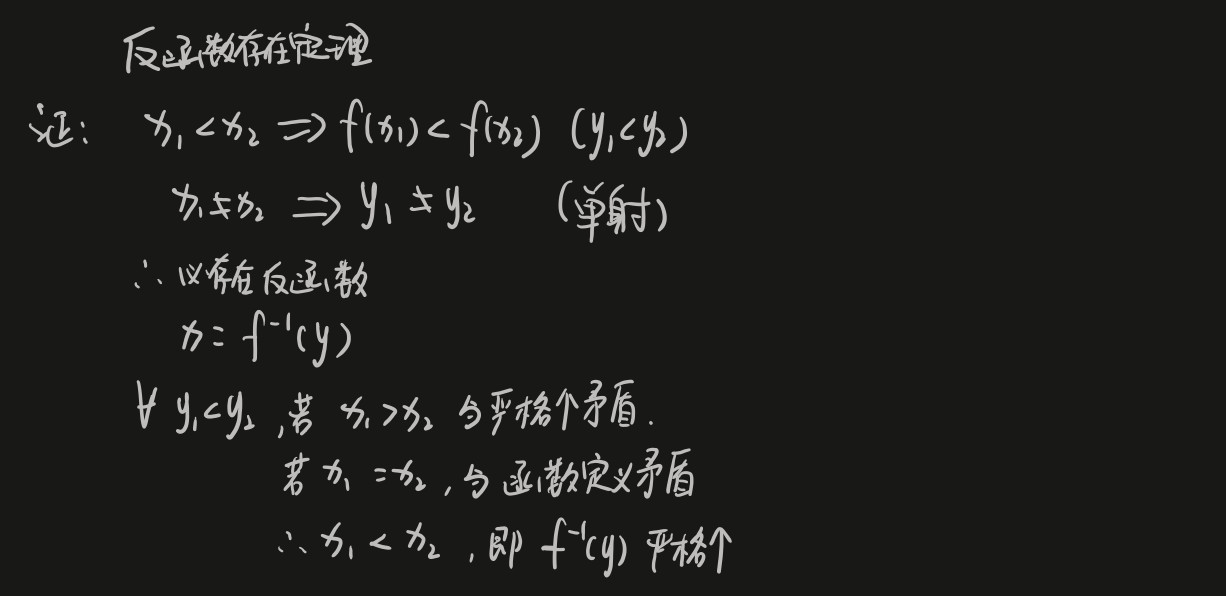 反函数存在定理
证: x₁ < x₂ ⇒ f(x₁) < f(x₂) (y₁<y₂)
x₁≠x₂ ⇒ y₁ ≠ y₂ (单射)
∴ 必存在反函数
x = f⁻¹(y)
∀ y₁<y₂, 若 x₁>x₂ 与严格↑矛盾.
若 x₁ =x₂, 与函数定义矛盾
∴ x₁ < x₂, 即 f⁻¹(y) 严格↑